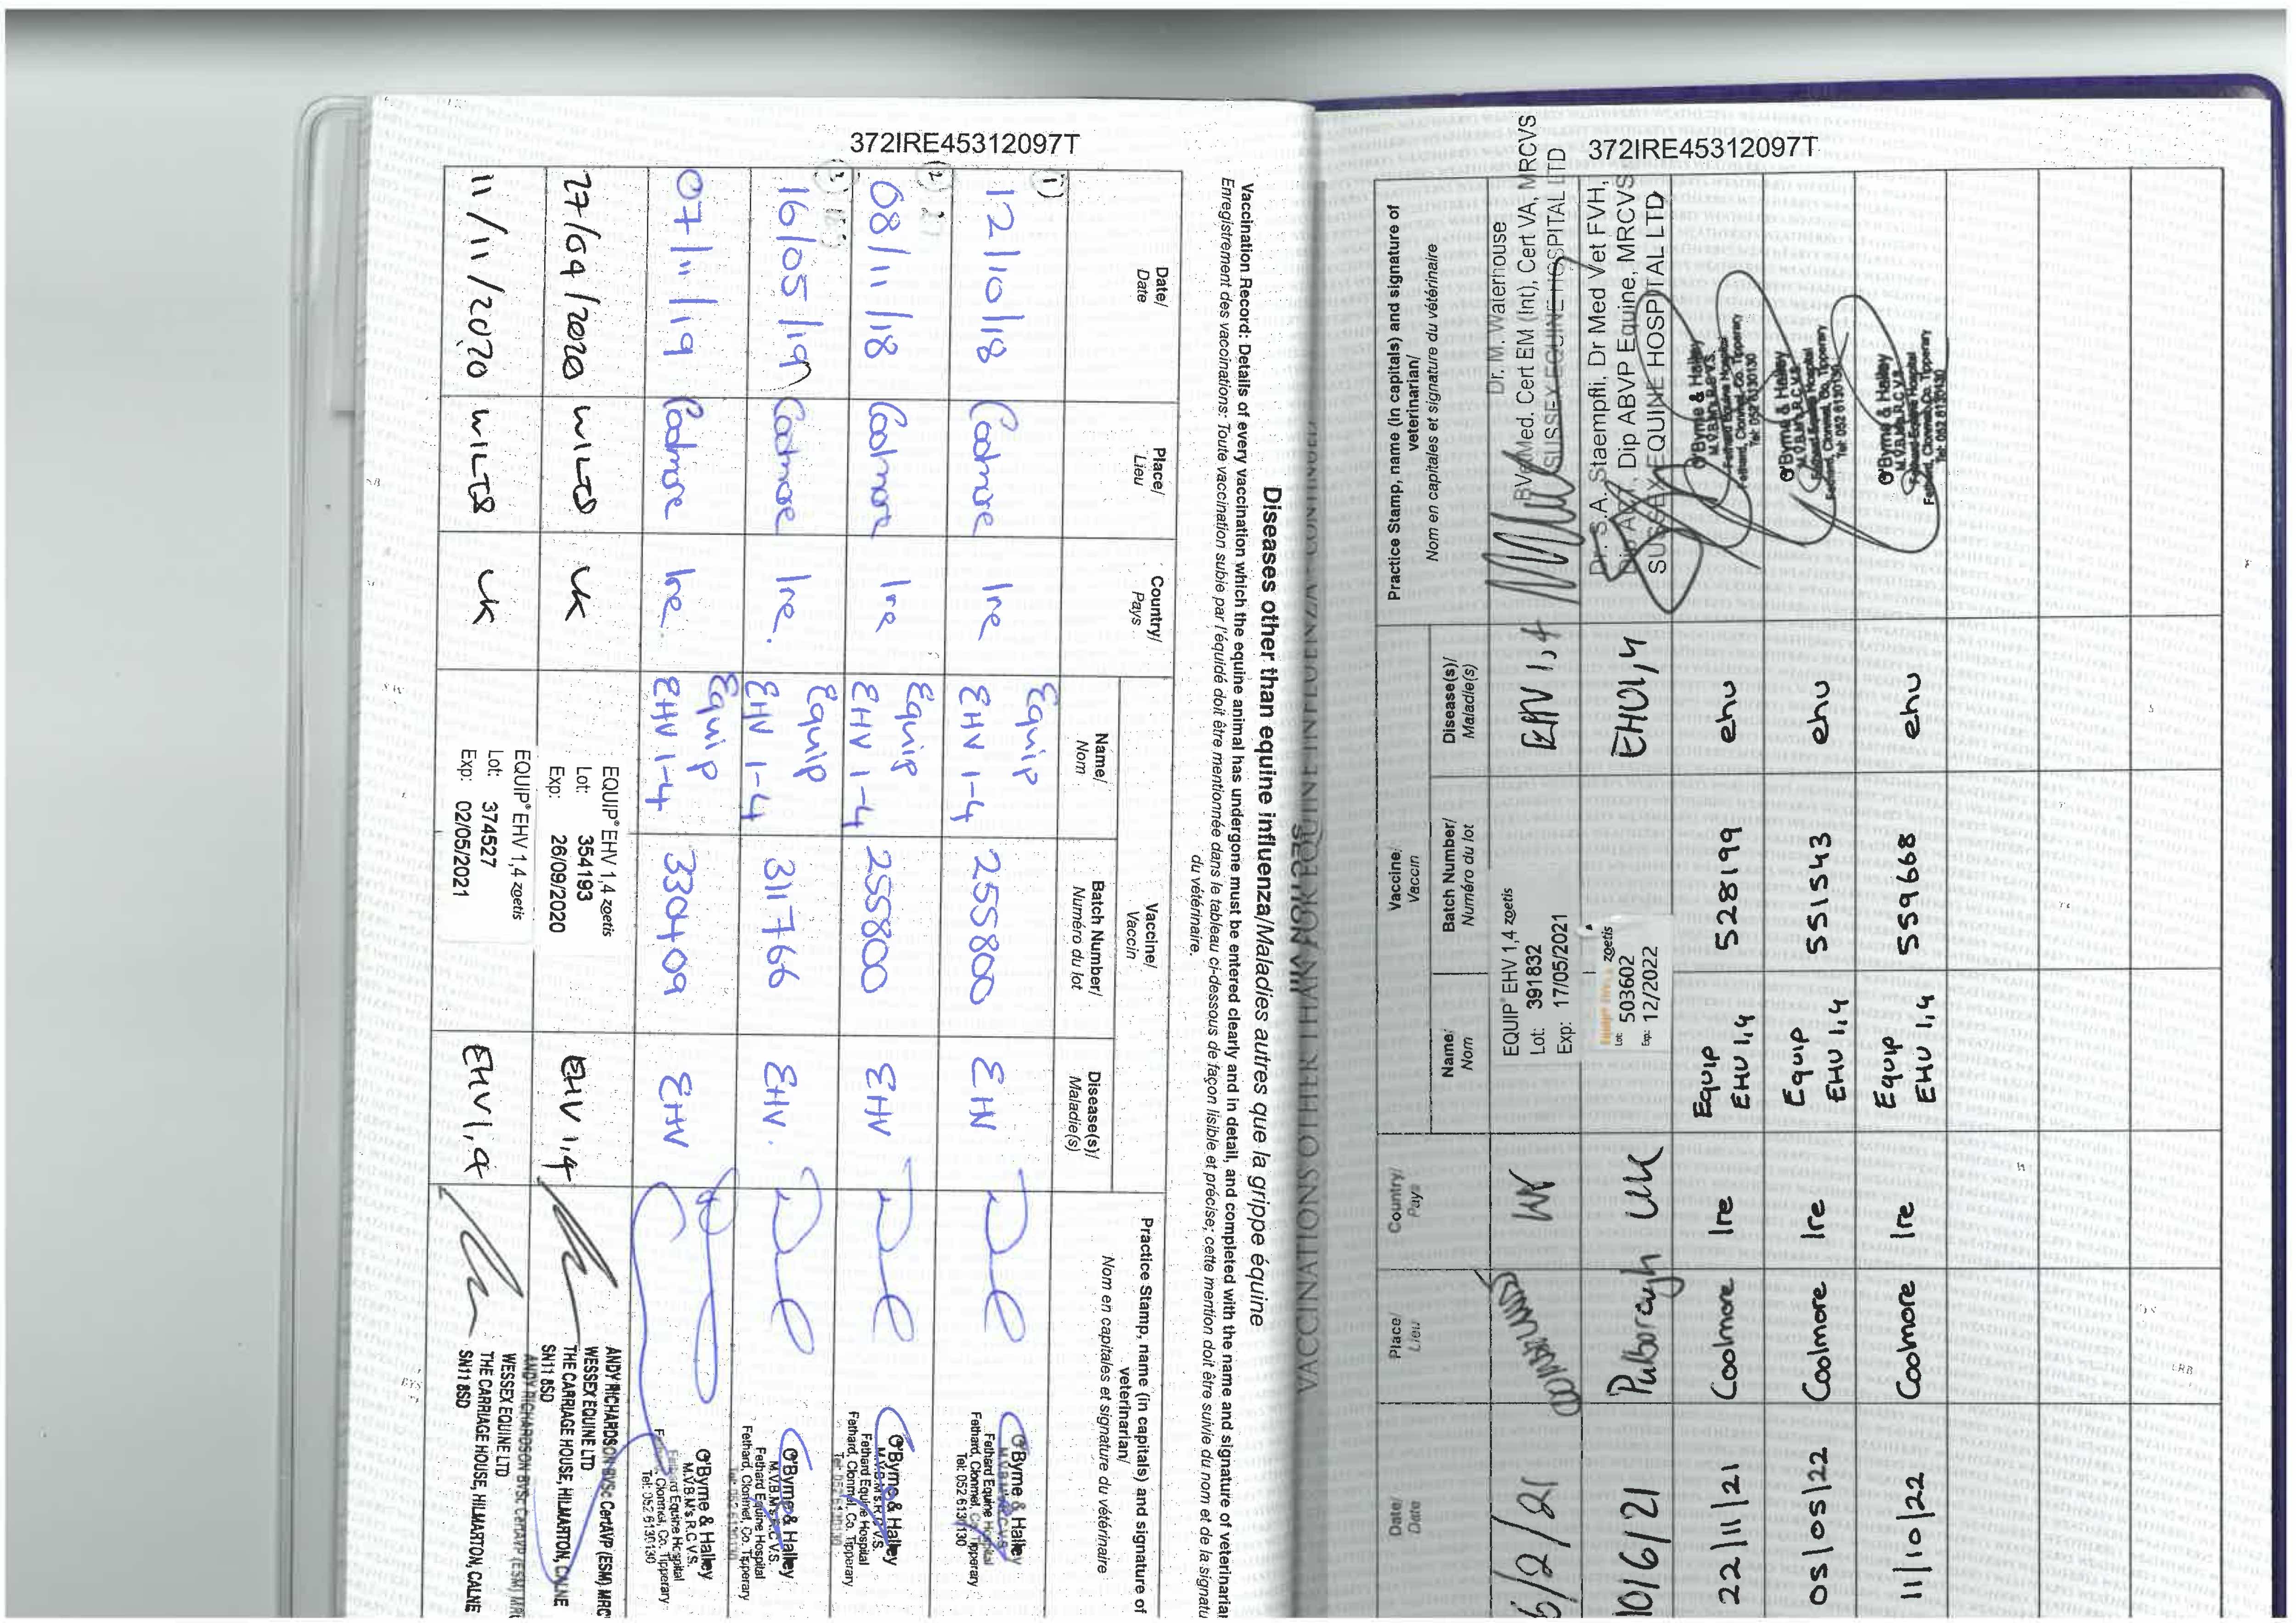 372IRE45312097T
Diseases other than equine influenza/Maladies autres que la grippe équine
Vaccination Record: Details of every vaccination which the equine animal has undergone must be entered clearly and in detail, and completed with the name and signature of veterinarian
Enregistrement des vaccinations: Toute vaccination subie par l'équidé doit être mentionnée dans le tableau ci-dessous de façon lisible et précise; cette mention doit être suivie du nom et de la signatu
du vétérinaire.
Date/
Date
Place/
Lieu
Country/
Pays
Vaccine/
Vaccin
Name/
Nom
Batch Number/
Numéro du lot
Disease(s)/
Maladie(s)
Practice Stamp, name (in capitals) and signature of
veterinarian/
Nom en capitales et signature du vétérinaire
1)
12/10/18 Coolmore Ire Equip
EHV 1-4 255800 EHV
O'Byrne & Halley
M.V.B.M's.R.C.V.S.
Fethard Equine Hospital
Fethard, Clonmel, Co. Tipperary
Tel: 052 6130130
(2)
08/11/18 Coolmore Ire Equip
EHV 1-4 255800 EHV
O'Byrne & Halley
M.V.B.M's.R.C.V.S.
Fethard Equine Hospital
Fethard, Clonmel, Co. Tipperary
Tel: 052 6130130
(3)
16/05/19 Coolmore Ire. Equip
EHV 1-4 311766 EHV.
O'Byrne & Halley
M.V.B.M's.R.C.V.S.
Fethard Equine Hospital
Fethard, Clonmel, Co. Tipperary
Tel: 052 6130130
07/11/19 Coolmore Ire. Equip
EHV 1-4 330409 EHV
O'Byrne & Halley
M.V.B.M's.R.C.V.S.
Fethard Equine Hospital
Clonmel, Co. Tipperary
Tel: 052 6130130
27/09/2020 WILTS UK
EQUIP® EHV 1,4 zoetis
Lot: 354193
Exp: 26/09/2020
EHV 1,4
ANDY RICHARDSON BVSc CertAVP (ESM) MRC
WESSEX EQUINE LTD
THE CARRIAGE HOUSE, HILMARTON, CALNE
SN11 8SD
11/11/2020 WILTS UK
EQUIP® EHV 1,4 zoetis
Lot: 374527
Exp: 02/05/2021
EHV 1,4
ANDY RICHARDSON BVSc CertAVP (ESM) MR
WESSEX EQUINE LTD
THE CARRIAGE HOUSE, HILMARTON, CALNE
SN11 8SD
372IRE45312097T
VACCINATIONS OTHER THAN FOR EQUINE INFLUENZA - CONTINUED
Date/
Date
Place/
Lieu
Country/
Pays
Vaccine/
Vaccin
Name/
Nom
Batch Number/
Numéro du lot
Disease(s)/
Maladie(s)
Practice Stamp, name (in capitals) and signature of
veterinarian/
Nom en capitales et signature du vétérinaire
5/2/21
EQUIP® EHV 1,4 zoetis
Lot: 391832
Exp: 17/05/2021
EHV 1,4
Dr. M. Waterhouse
BVetMed. Cert EM (Int), Cert VA, MRCVS
SUSSEX EQUINE HOSPITAL LTD
10/6/21 Pulborough UK
zoetis
Lot: 503602
Exp: 12/2022
EHV1,4
Dr. S.A. Staempfli, Dr Med Vet FVH,
Dip ABVP Equine, MRCVS
SUSSEX EQUINE HOSPITAL LTD
22/11/21 Coolmore Ire Equip
EHV 1,4 528199 ehv
O'Byrne & Halley
Fethard Equine Hospital
Fethard, Clonmel, Co. Tipperary
Tel: 052 6130130
05/05/22 Coolmore Ire Equip
EHV 1,4 551543 ehv
O'Byrne & Halley
M.V.B.M's.R.C.V.S.
Fethard Equine Hospital
Fethard, Clonmel, Co. Tipperary
Tel: 052 6130130
11/10/22 Coolmore Ire Equip
EHV 1,4 559668 ehv
O'Byrne & Halley
M.V.B.M's.R.C.V.S.
Fethard Equine Hospital
Fethard, Clonmel, Co. Tipperary
Tel: 052 6130130